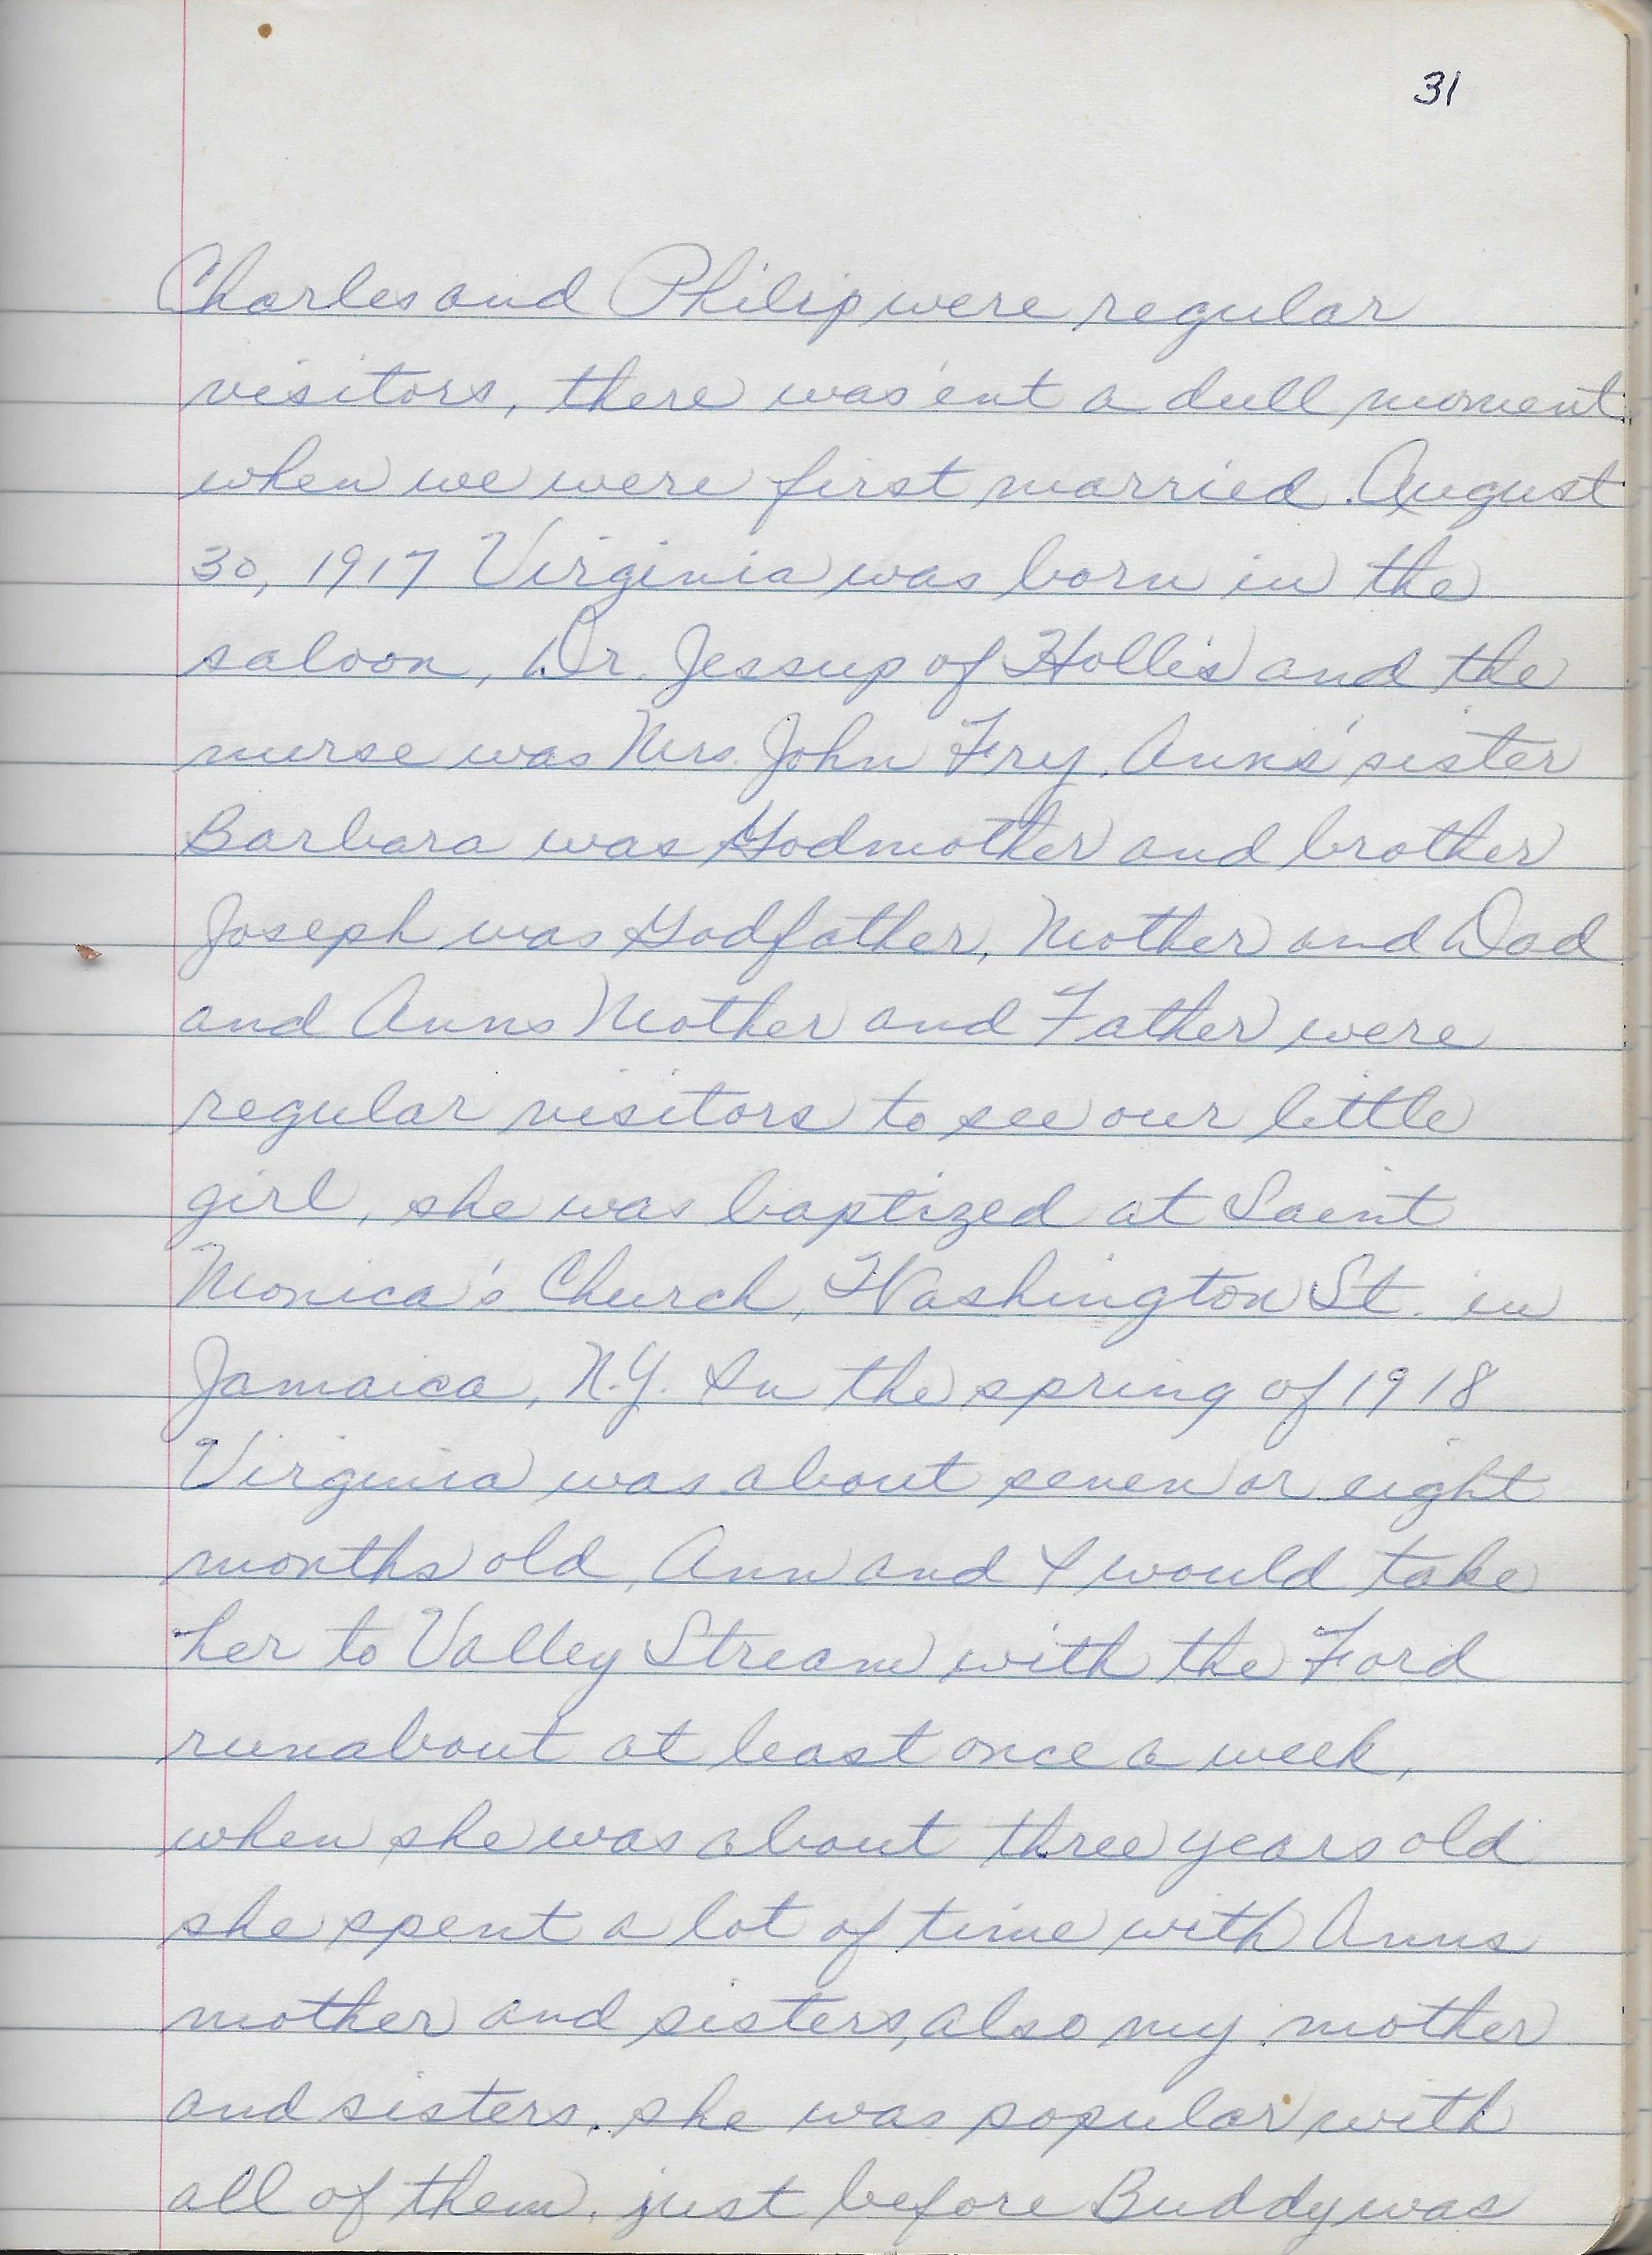 31
Charles and Philip were regular
visitors, there was'ent a dull moment
when we were first married. August
30, 1917 Virginia was born in the
saloon, Dr. Jessup of Hollis and the
nurse was Mrs. John Fry. Anns' sister
Barbara was Godmother and brother
Joseph was Godfather, Mother and Dad
and Anns Mother and Father were
regular visitors to see our little
girl, she was baptized at Saint
Monica's Church, Washington St. in
Jamaica, N.Y. In the spring of 1918
Virginia was about seven or eight
months old, Ann and I would take
her to Valley Stream with the Ford
runabout at least once a week,
when she was about three years old
she spent a lot of time with Anns
mother and sisters, also my mother
and sisters. she was popular with
all of them. just before Buddy was